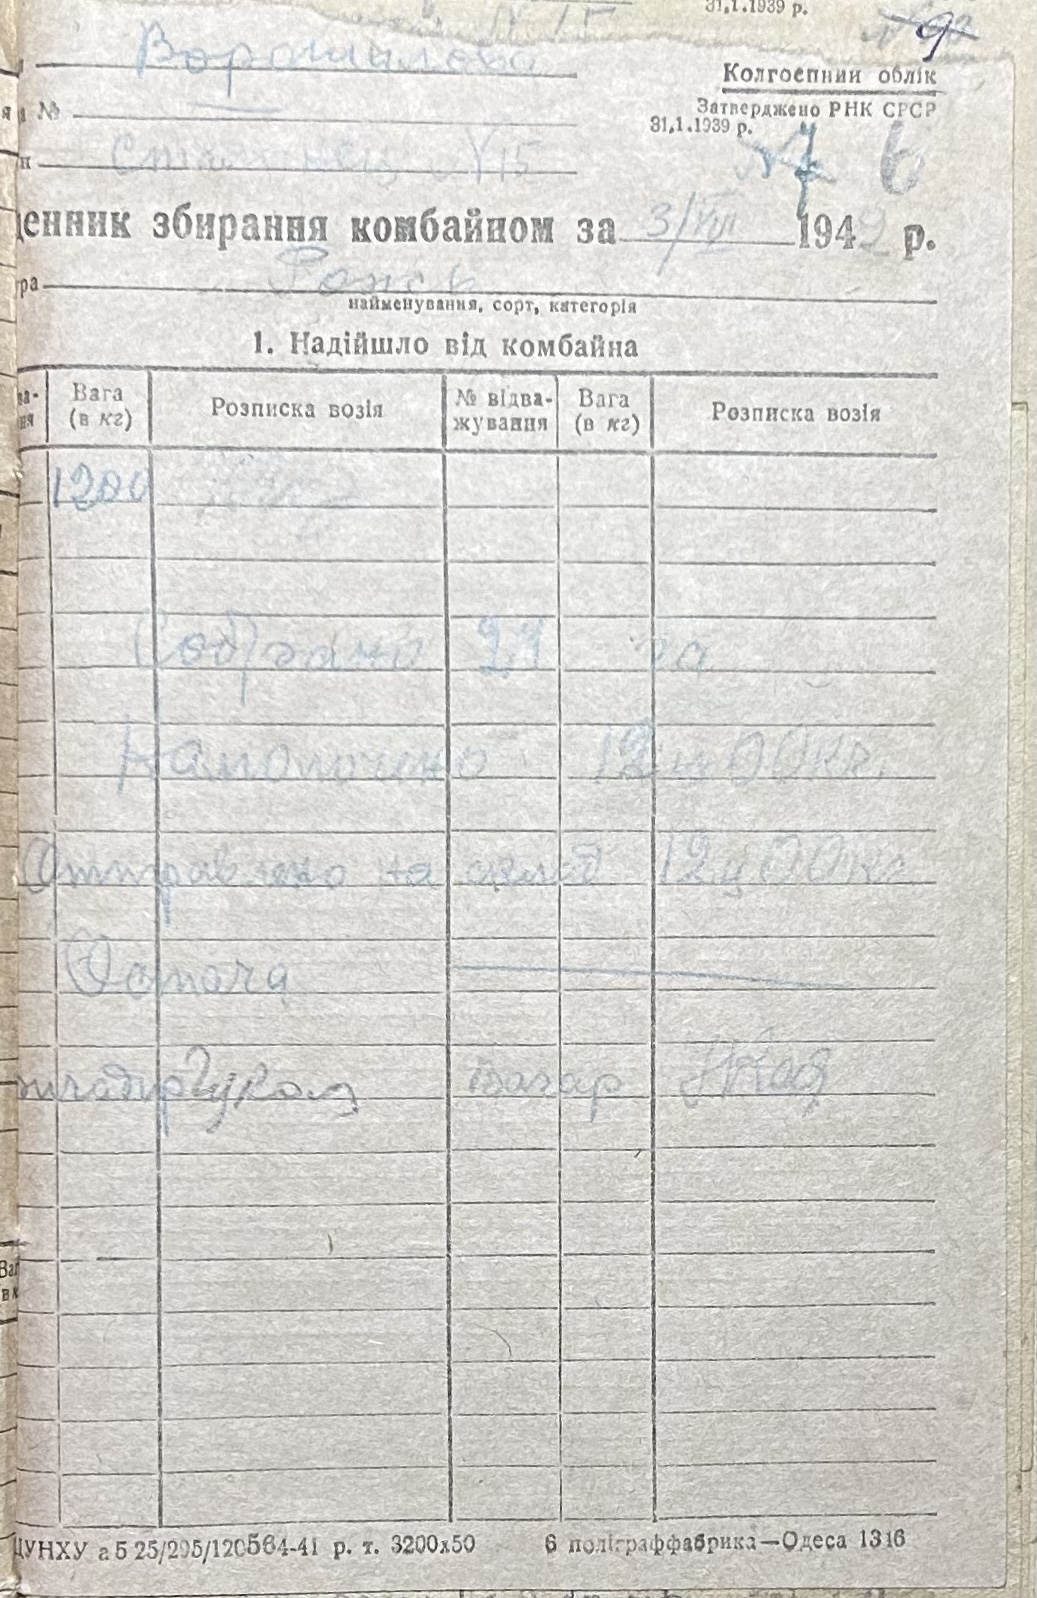 31.1.1939 р.
9
Ворошилова
Колгоспний облік
№
Затверджено РНК СРСР
31.1.1939 р.
Сталинец №15
6
денник збирання комбайном за 3/VIII 1942 р.
ра Рожь
найменування, сорт, категорія
1. Надійшло від комбайна
ва-ня Вага (в кг) Розписка возія № відва-жування Вага (в кг) Розписка возія
1200
Собрано 2,1 га
Намолочино 12 ц 00 кг.
Отправлено на склад 12 ц 00 кг
Остача
Вагар
Ваг
в к
ЦУНХУ а 5 25/295/120564-41 р. т. 3200х50 6 поліграффабрика—Одеса 1316